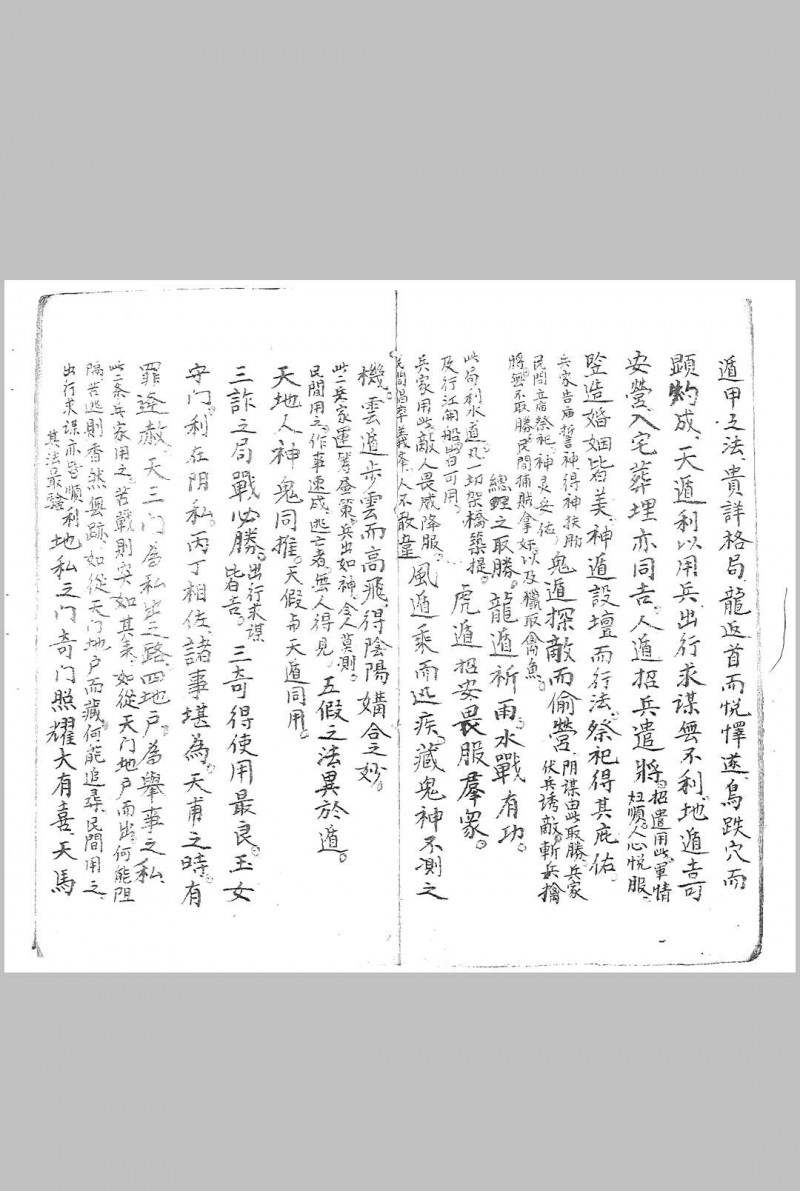 遁甲之法、貴詳格局、龍返首而悅懌遂、鳥跌穴而
顕灼成、天遁利以用兵、出行求謀無不利、地遁吉可
安營、入宅葬埋亦同吉。人遁招兵遣將。招遣用此、軍情
妇順。人心悅服、
監造婚姻皆美、神遁設壇而行法。祭祀得其庇佑。
兵家告庙誓神、得神扶助
民間立宿祭祀、神灵妥佑、鬼遁探敵而偷營、阴谋由此取勝。兵家
伏兵誘敵、斬兵擒
將、無不取勝、民間捕賊拿奸、以及獵取禽魚。
之取勝。龍遁祈雨、水戰有功。
此局利水道、凡一切架橋築提、
及行江開船、皆可用。虎遁招安畏服羣象。
兵家用此、敵人畏威降服。
民間倡率義峯、人不敢違、風遁乘而迅疾。藏鬼神不測之
機。雲遁步雲而高飛、得陰陽媾合之妙。
此二兵家運筹昼策。兵出如神、令人莫測。
民間用之。作事速成、逃亡者。無人得見。五假之法異於遁。
天地人神鬼同推。天假与天遁同用。
三詐之局戰必勝。出行求謀
皆吉。三奇得使用最良。玉女
守门。利在阴私。丙丁相佐、諸事堪為。天甫之時、有
罪逢赦、天三门為私出之路、四地户、為舉事之私、
此二条兵家用之。苦戰則突如其來、如從天门地户而出。何能阻
隔、苦逃則香然無跡、如從天门地户而藏。何能追尋、民間用之、
出行求谋亦皆順利
其法最騐、地私之门、奇门照耀大有喜、天馬